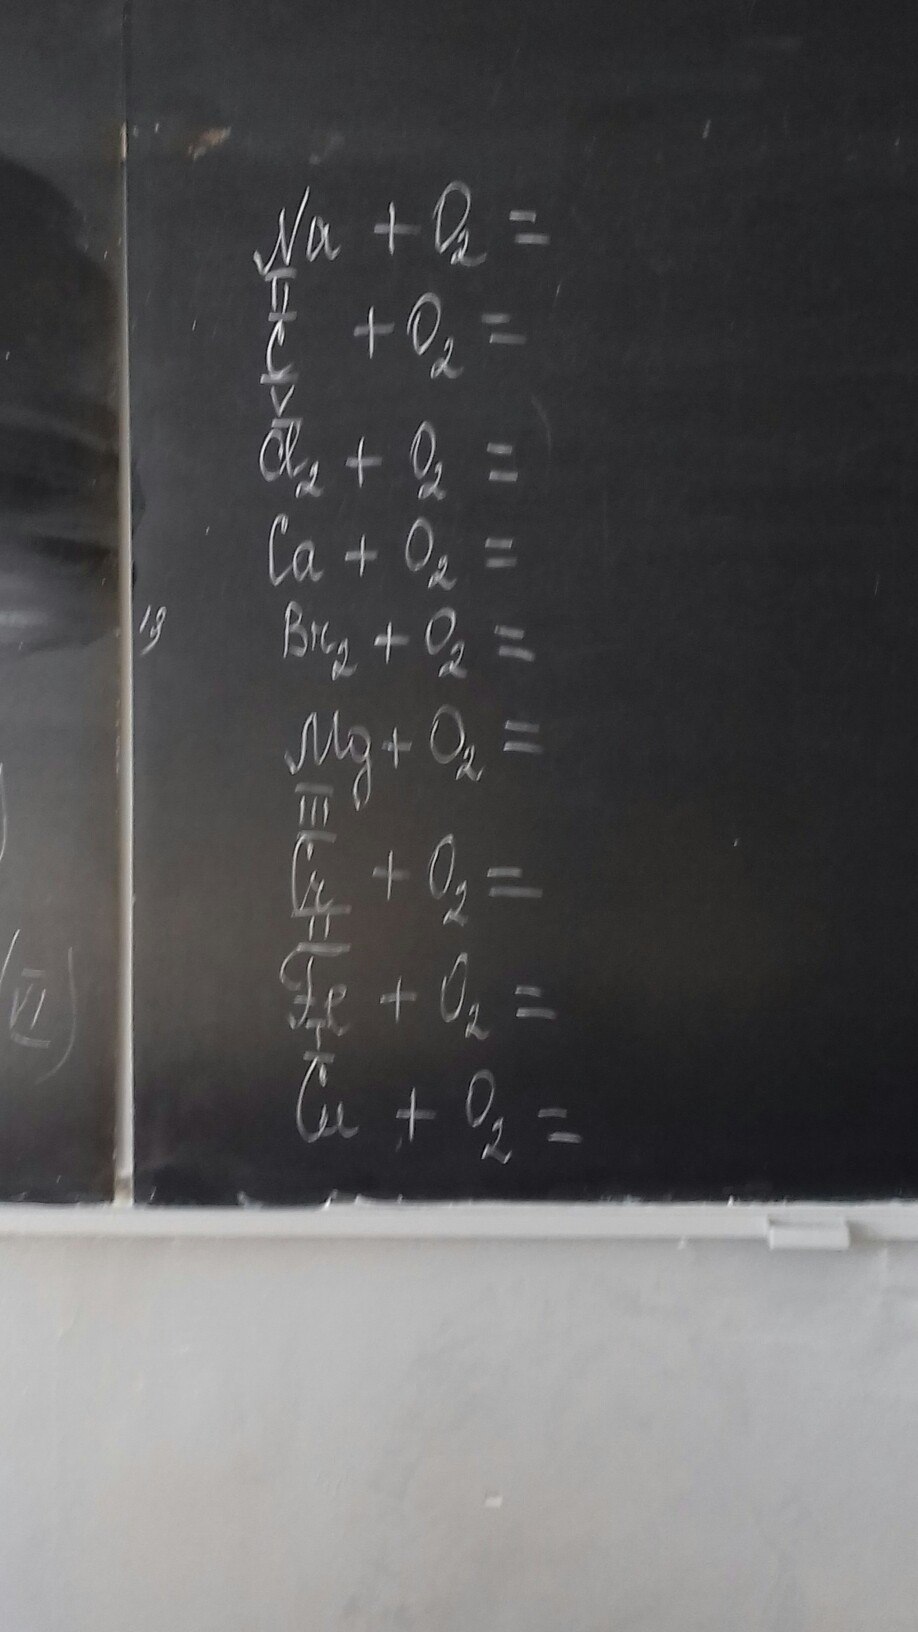 Na + O₂ =
II
C + O₂ =
V
Cl₂ + O₂ =
Ca + O₂ =
Br₂ + O₂ =
Mg + O₂ =
III
Cr + O₂ =
II
Fe + O₂ =
I
Cu + O₂ =
(VI)